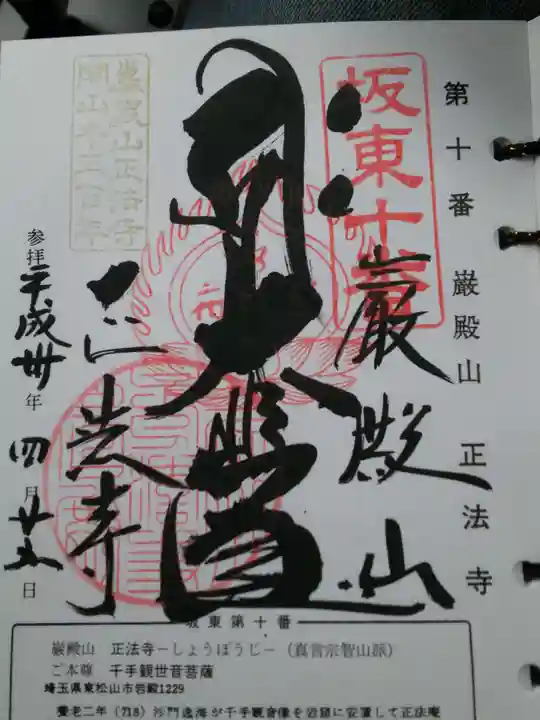 第十番 巌殿山 正法寺
坂東十番
巌殿山
大悲閣
正法寺
巌殿山正法寺
開山千三百年
参拝平成卅年四月廿五日
坂東第十番
巌殿山 正法寺ーしょうぼうじー（真言宗智山派）
ご本尊 千手観世音菩薩
埼玉県東松山市岩殿1229
養老二年（718）沙門逸海が千手観音像を岩窟に安置して正法庵